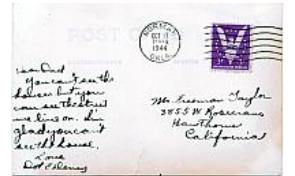 POST CARD
NORMAN
OCT 11
1944
OKLA.
Dear Dad
You can't see the
houses but you
can see the street
we live on. I'm
glad you can't
see the house.
Love
Dot &
Mr. Freeman Taylor
3855 W Rosecrans
Hawthorne
California